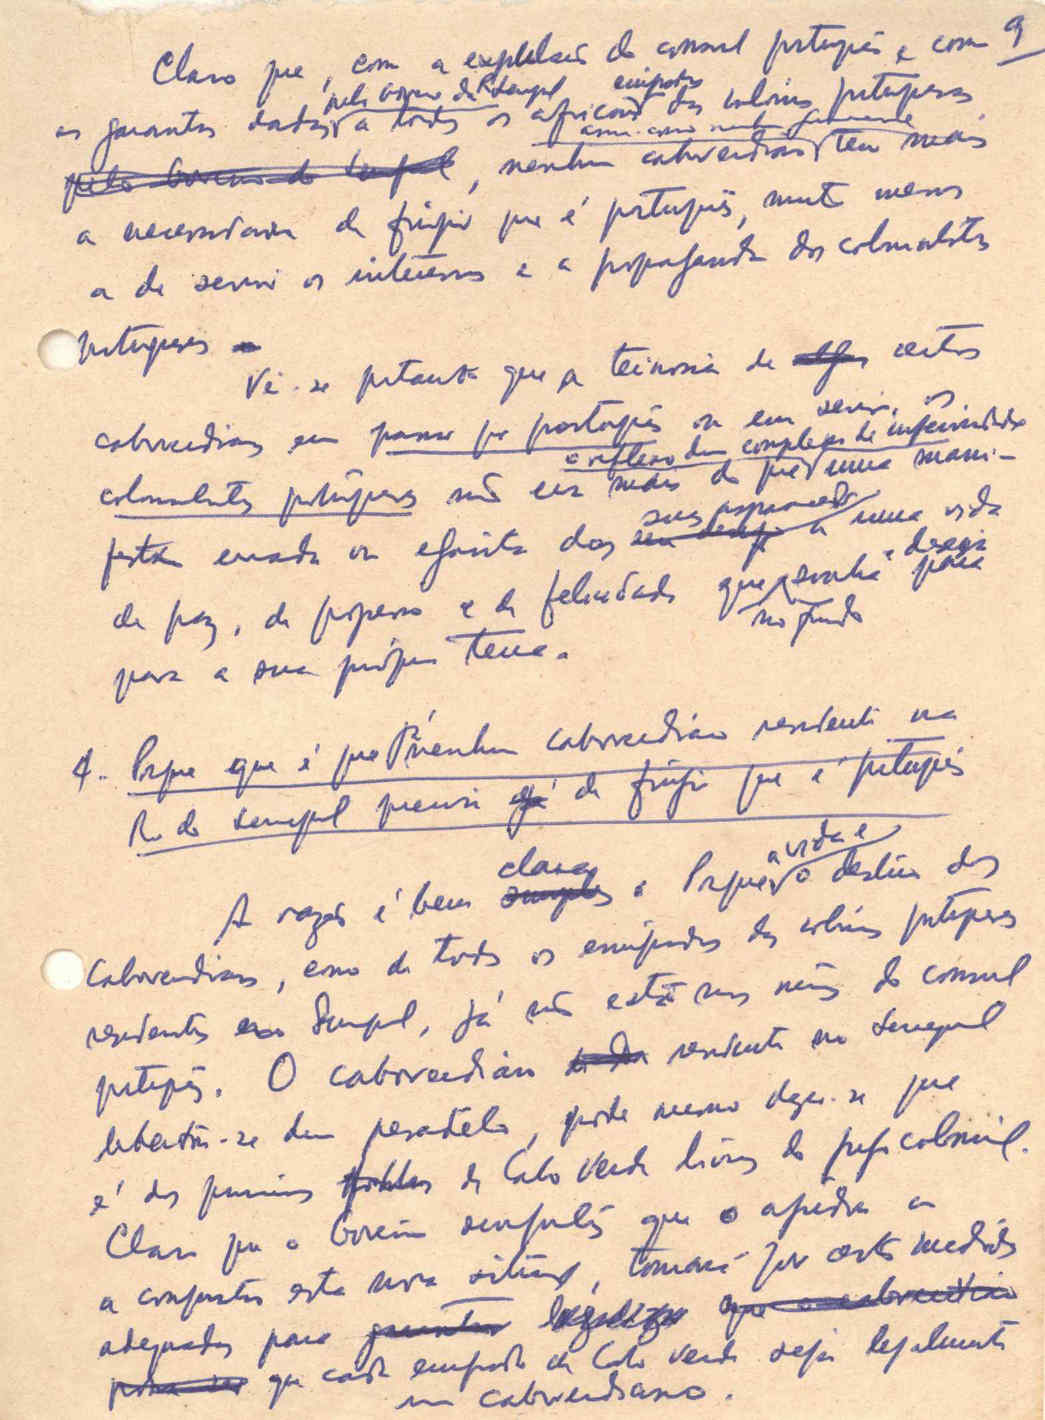 9
Claro que, com a expulsão do consul português e com
pelo Governo do Senegal emigrados
as garantias dadas a todos os africanos das colónias portuguesas
assim como nenhum
pelo Governo do Senegal, nenhum caboverdiano tem mais
a necessidade de fingir que é português, muito menos
a de servir os interesses e a propaganda dos colonialistas
portugueses
Vê-se portanto que a teimosia de certos
caboverdianos em passar por português ou em servir os
o reflexo dum complexo de inferioridade
colonialistas portugueses não era mais do que uma mani-
suas
festação errada ou egoísta dos seu desejo a uma vida
e deseja
de paz, de progresso e de felicidade que sonha para
no fundo
para a sua própria terra.
4. Porque que é que nenhum caboverdiano residente na
R. do Senegal precisa já de fingir que é português
clara a vida e
A razão é bem simples: Porque o destino dos
Caboverdianos, como de todos os emigrados das colónias portuguesas
residentes no Senegal, já não está nas mãos do consul
português. O caboverdiano residente no Senegal
libertou-se dum pesadelo, pode mesmo dizer-se que
é dos primeiros filhos de Cabo Verde livres do jugo colonial.
Claro que o Governo senegalês que o ajudou a
a conquistar esta nova situação, tomará por certo medidas
adequadas para garantir que o caboverdiano
possa ser que cada emigrado de Cabo Verde seja legalmente
um caboverdiano.